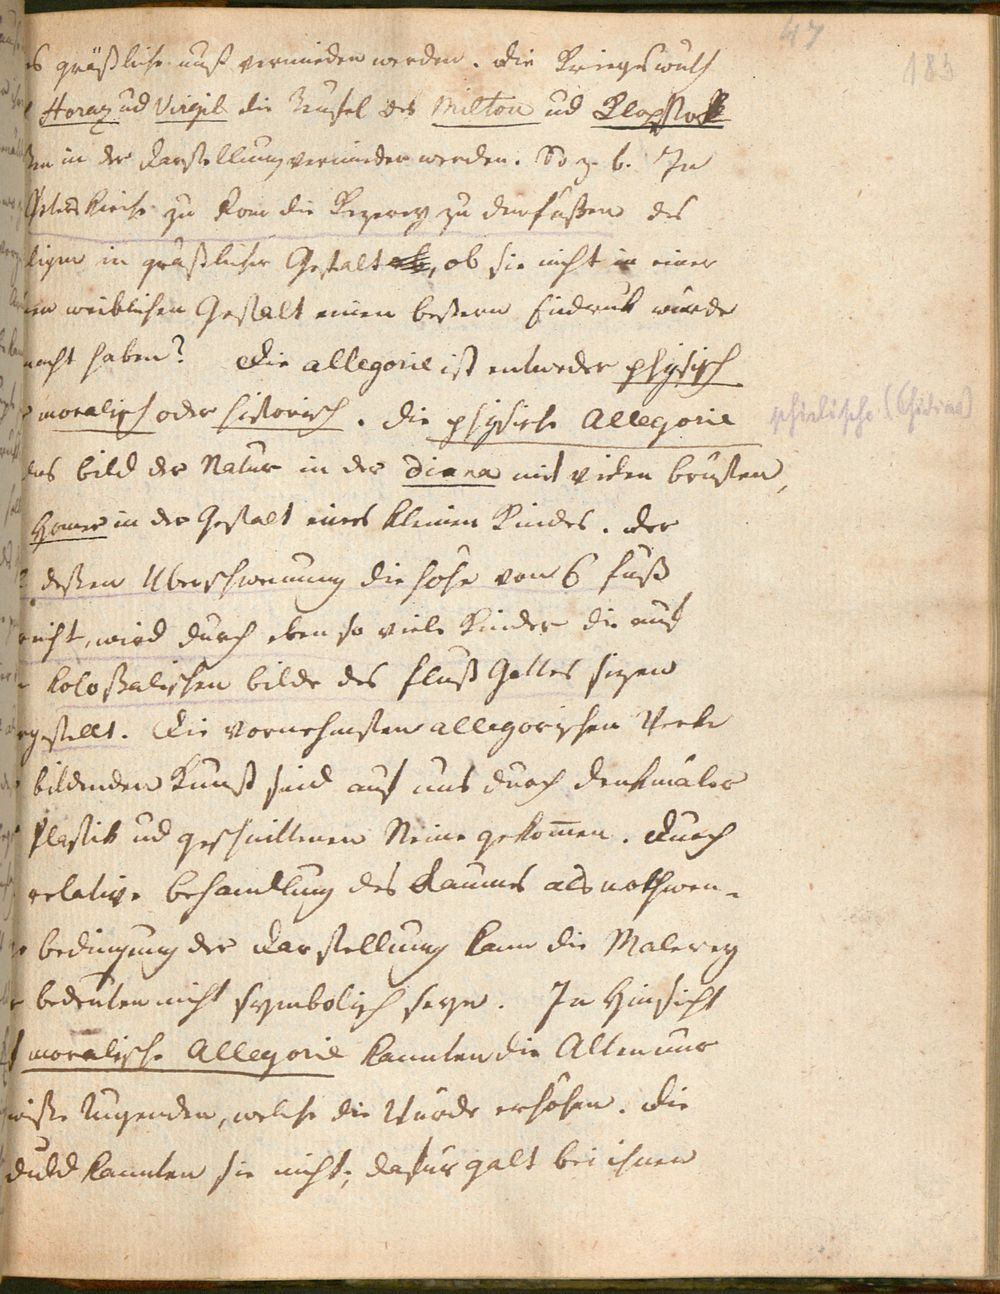 47
183
gräßliche muß vermieden werden. Die Kriegswuth
Horaz ud Virgil die Teufel des Milton ud Klopstok
in der Darstellung vermieden werden. So z. b. In
Peters Kirche zu Rom die Kezerey zu den füßen des
ligen in gräßlicher Gestalt, ob sie nicht in einer
weiblichen Gestalt einen beßern Eindruk würde
macht haben? Die allegorie ist entweder physisch
moralisch oder historisch. Die physische Allegorie
das bild der Natur in der Diana mit vielen brüsten,
Homer in der Gestalt eines kleinen Kindes. Der
deßen Uberschwemung die höhe von 6 fuß
reicht, wird durch eben so viele Kinder die auf
koloßalischen bilde des fluß Gottes sizen
rgestellt. Die vornehmsten allegorischen Werke
bildenden Kunst sind auf uns durch denkmäler
Plastik ud geschnittenen Steine gekom̄en. Durch
relative behandlung des Raumes als nothwen-
bedingung der Darstellung kann die Malerey
bedeuten nicht symbolisch seyn. In Hinsicht
moralische Allegorie kannten die Alten nur
wiße Tugenden, welche die Würde erhöhen. Die
duld kannten sie nicht, dafür galt bei ihnen